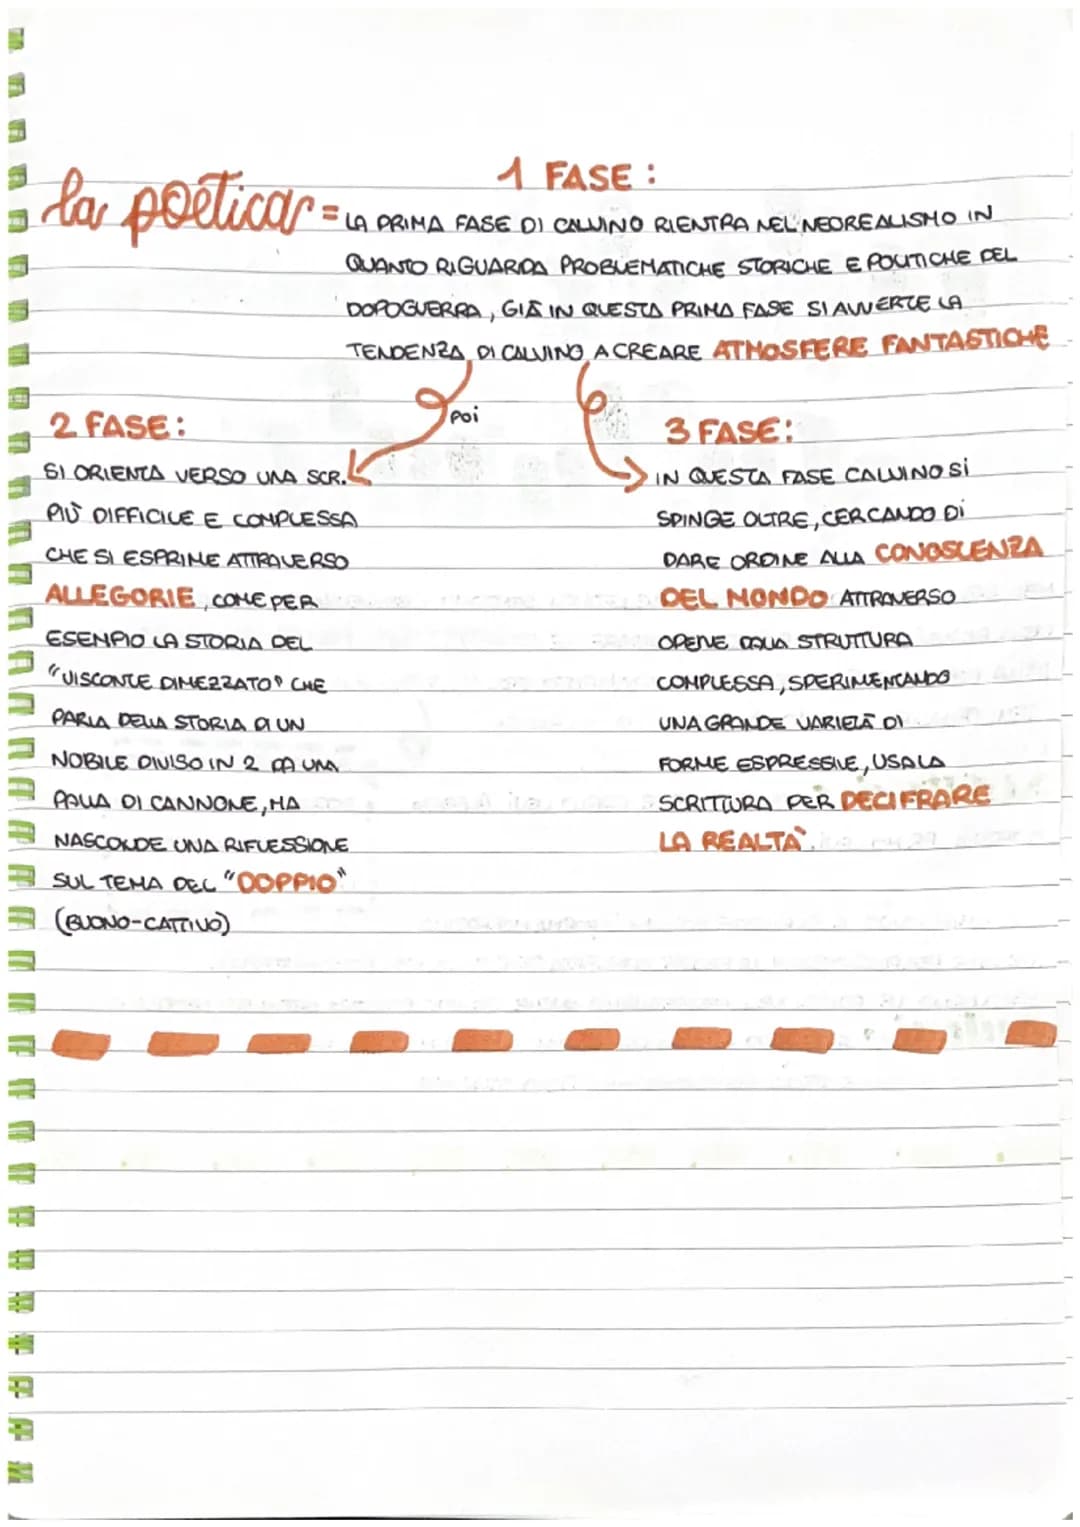 1 FASE:
la poetica =
LA PRIMA FASE DI CALVINO RIENTRA NEL NEOREALISMO IN
QUANTO RIGUARDA PROBLEMATICHE STORICHE E POLITICHE DEL
DOPOGUERRA, GIÀ IN QUESTA PRIMA FASE SI AVVERTE LA
TENDENZA DI CALVINO A CREARE ATMOSFERE FANTASTICHE
poi
2 FASE:
SI ORIENTA VERSO UNA SCR.
PIÙ DIFFICILE E COMPLESSA
CHE SI ESPRIME ATTRAVERSO
ALLEGORIE, COME PER
ESEMPIO LA STORIA DEL
"VISCONTE DIMEZZATO" CHE
PARLA DELLA STORIA DI UN
NOBILE DIVISO IN 2 DA UNA
PALLA DI CANNONE, MA
NASCONDE UNA RIFLESSIONE
SUL TEMA DEL "DOPPIO"
(BUONO-CATTIVO)
3 FASE:
IN QUESTA FASE CALVINO SI
SPINGE OLTRE, CERCANDO DI
DARE ORDINE ALLA CONOSCENZA
DEL MONDO ATTRAVERSO
OPERE DALLA STRUTTURA
COMPLESSA, SPERIMENTANDO
UNA GRANDE VARIETÀ DI
FORME ESPRESSIVE, USA LA
SCRITTURA PER DECIFRARE
LA REALTÀ.